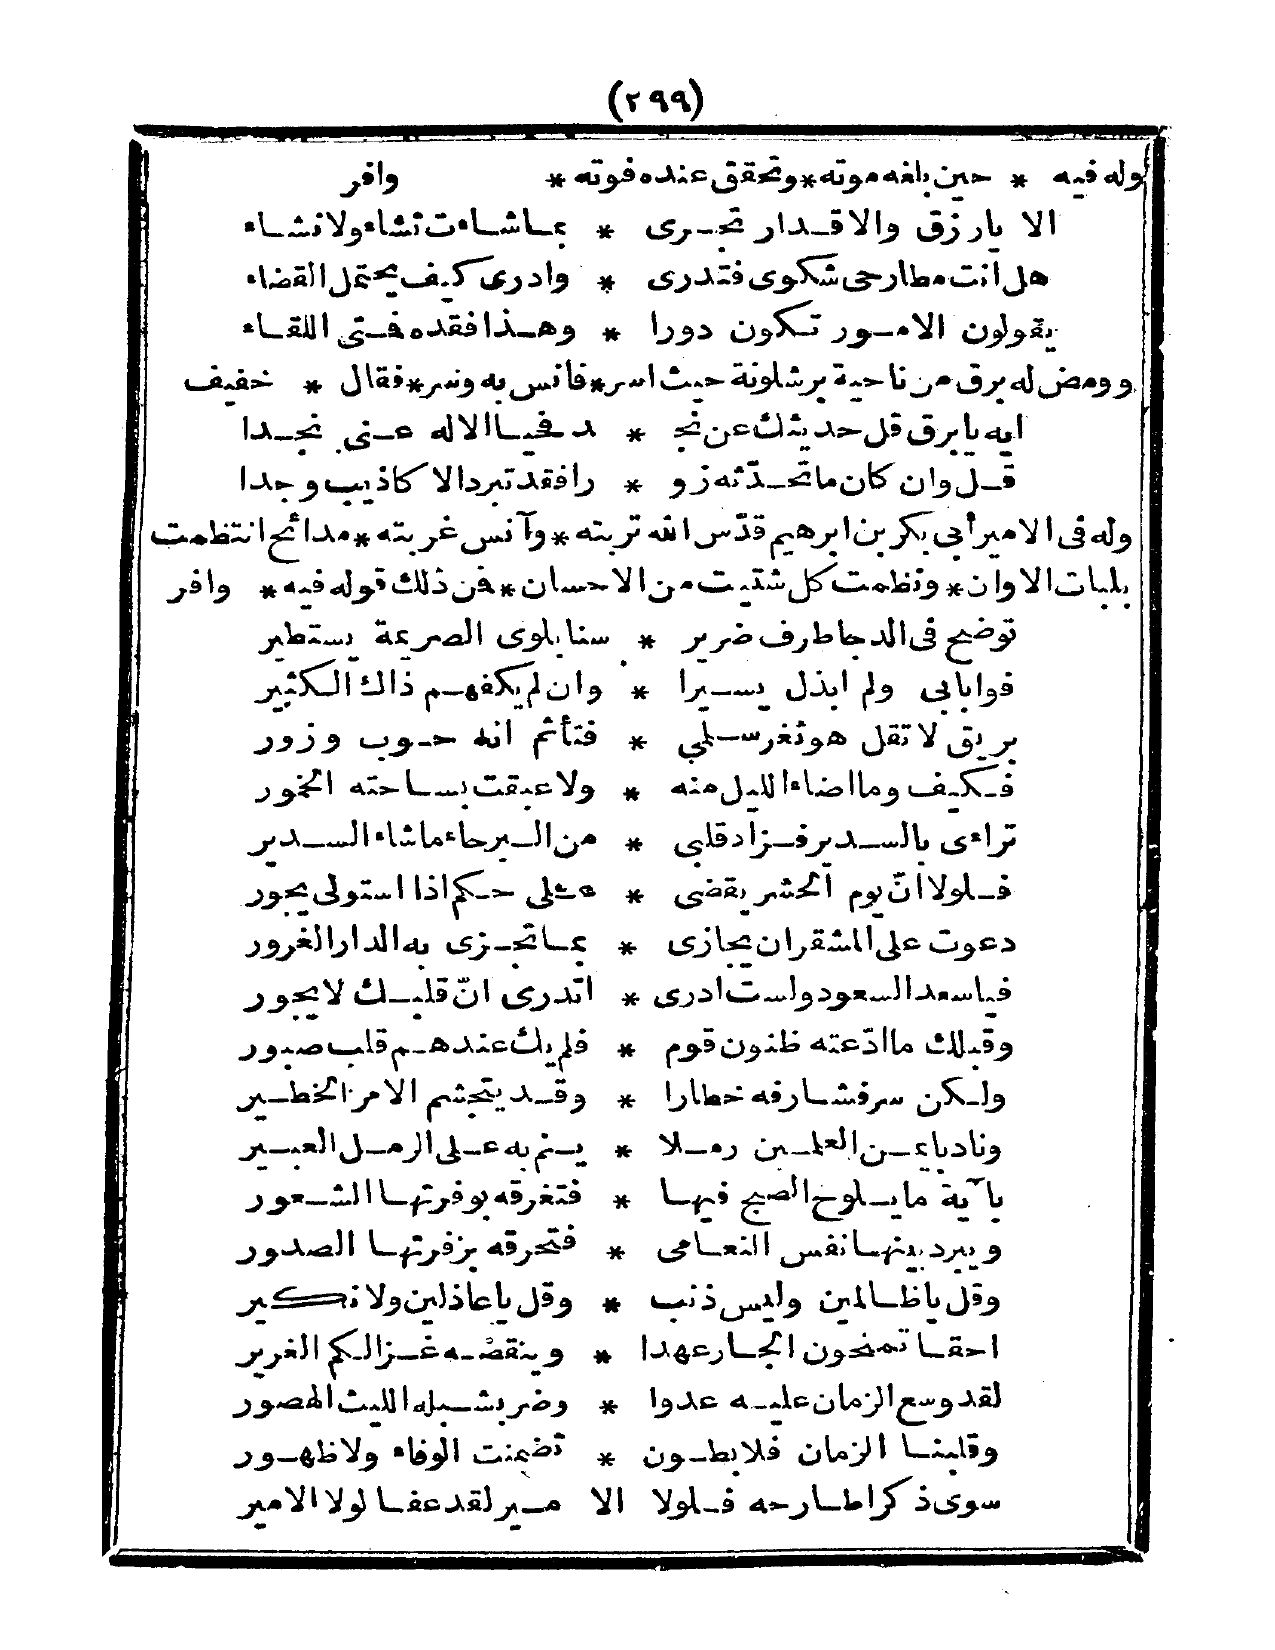 (٢٩٩)
وله فيه * حين بلغه موته * وتحقق عنده فوته * وافر
الا يارزق والاقدار تجرى * بماشاءت تشاء ولانشاء
هل أنت مطارحى شكوى فتدرى * وادرى كيف يحتمل القضاء
يقولون الامور تكون دورا * وهذا فقده فمتى اللقاء
وومض له برق من ناحية برشلونة حيث اسر * فأنس به وسر * فقال * خفيف
ايه يابرق قل حديثك عن نج * د فحيا الاله عنى نجدا
قل وان كان ماتحدّثه زو * را فقد تبرد الاكاذيب وجدا
وله فى الامير أبى بكر بن ابرهيم قدّس الله تربته * وآنس غربته * مدائح انتظمت
بلبات الاوان * ونظمت كل شتيت من الاحسان * فمن ذلك قوله فيه * وافر
توضح فى الدجا طرف ضرير * سنا بلوى الصرعة يستطير
فوابابى ولم ابذل يسيرا * وان لم يكفهم ذاك الكثير
بريق لاتقل هو ثغر سلمى * فتأثم انه حوب وزور
فكيف وما اضاء الليل منه * ولا عبقت بساحته الخمور
تراءى بالسدير فزاد قلبى * من البرحاء ماشاء السدير
فلولا انّ يوم الحشر يقضى * على حكم اذا استولى يجور
دعوت على المشقران يجازى * بما تجزى به الدار الغرور
فياسعد السعود ولست ادرى * اتدرى انّ قلبك لايحور
وقبلك ما ادّعته ظنون قوم * فلم يك عندهم قلب صبور
ولكن سر فشارفه خطارا * وقد يتجشم الامر الخطير
وناد باعن العلمين رملا * ينم به على الرمل العبير
بآية مايلوح الصبح فيها * فتغرقه بوفرتها الشعور
ويبرد بينها نفس النعامى * فتحرقه بزفرتها الصدور
وقل ياظالمين وليس ذنب * وقل ياعاذلين ولا نكير
احقا تمنحون الجار عهدا * وينقضه غزالكم الغرير
لقد وسع الزمان عليه عدوا * وضر بشبله الليث الهصور
وقلبنا الزمان فلا بطون * تضمنت الوفاء ولا ظهور
سوى ذكر اطارحه فلولا الا * مير لقد عفا لولا الامير